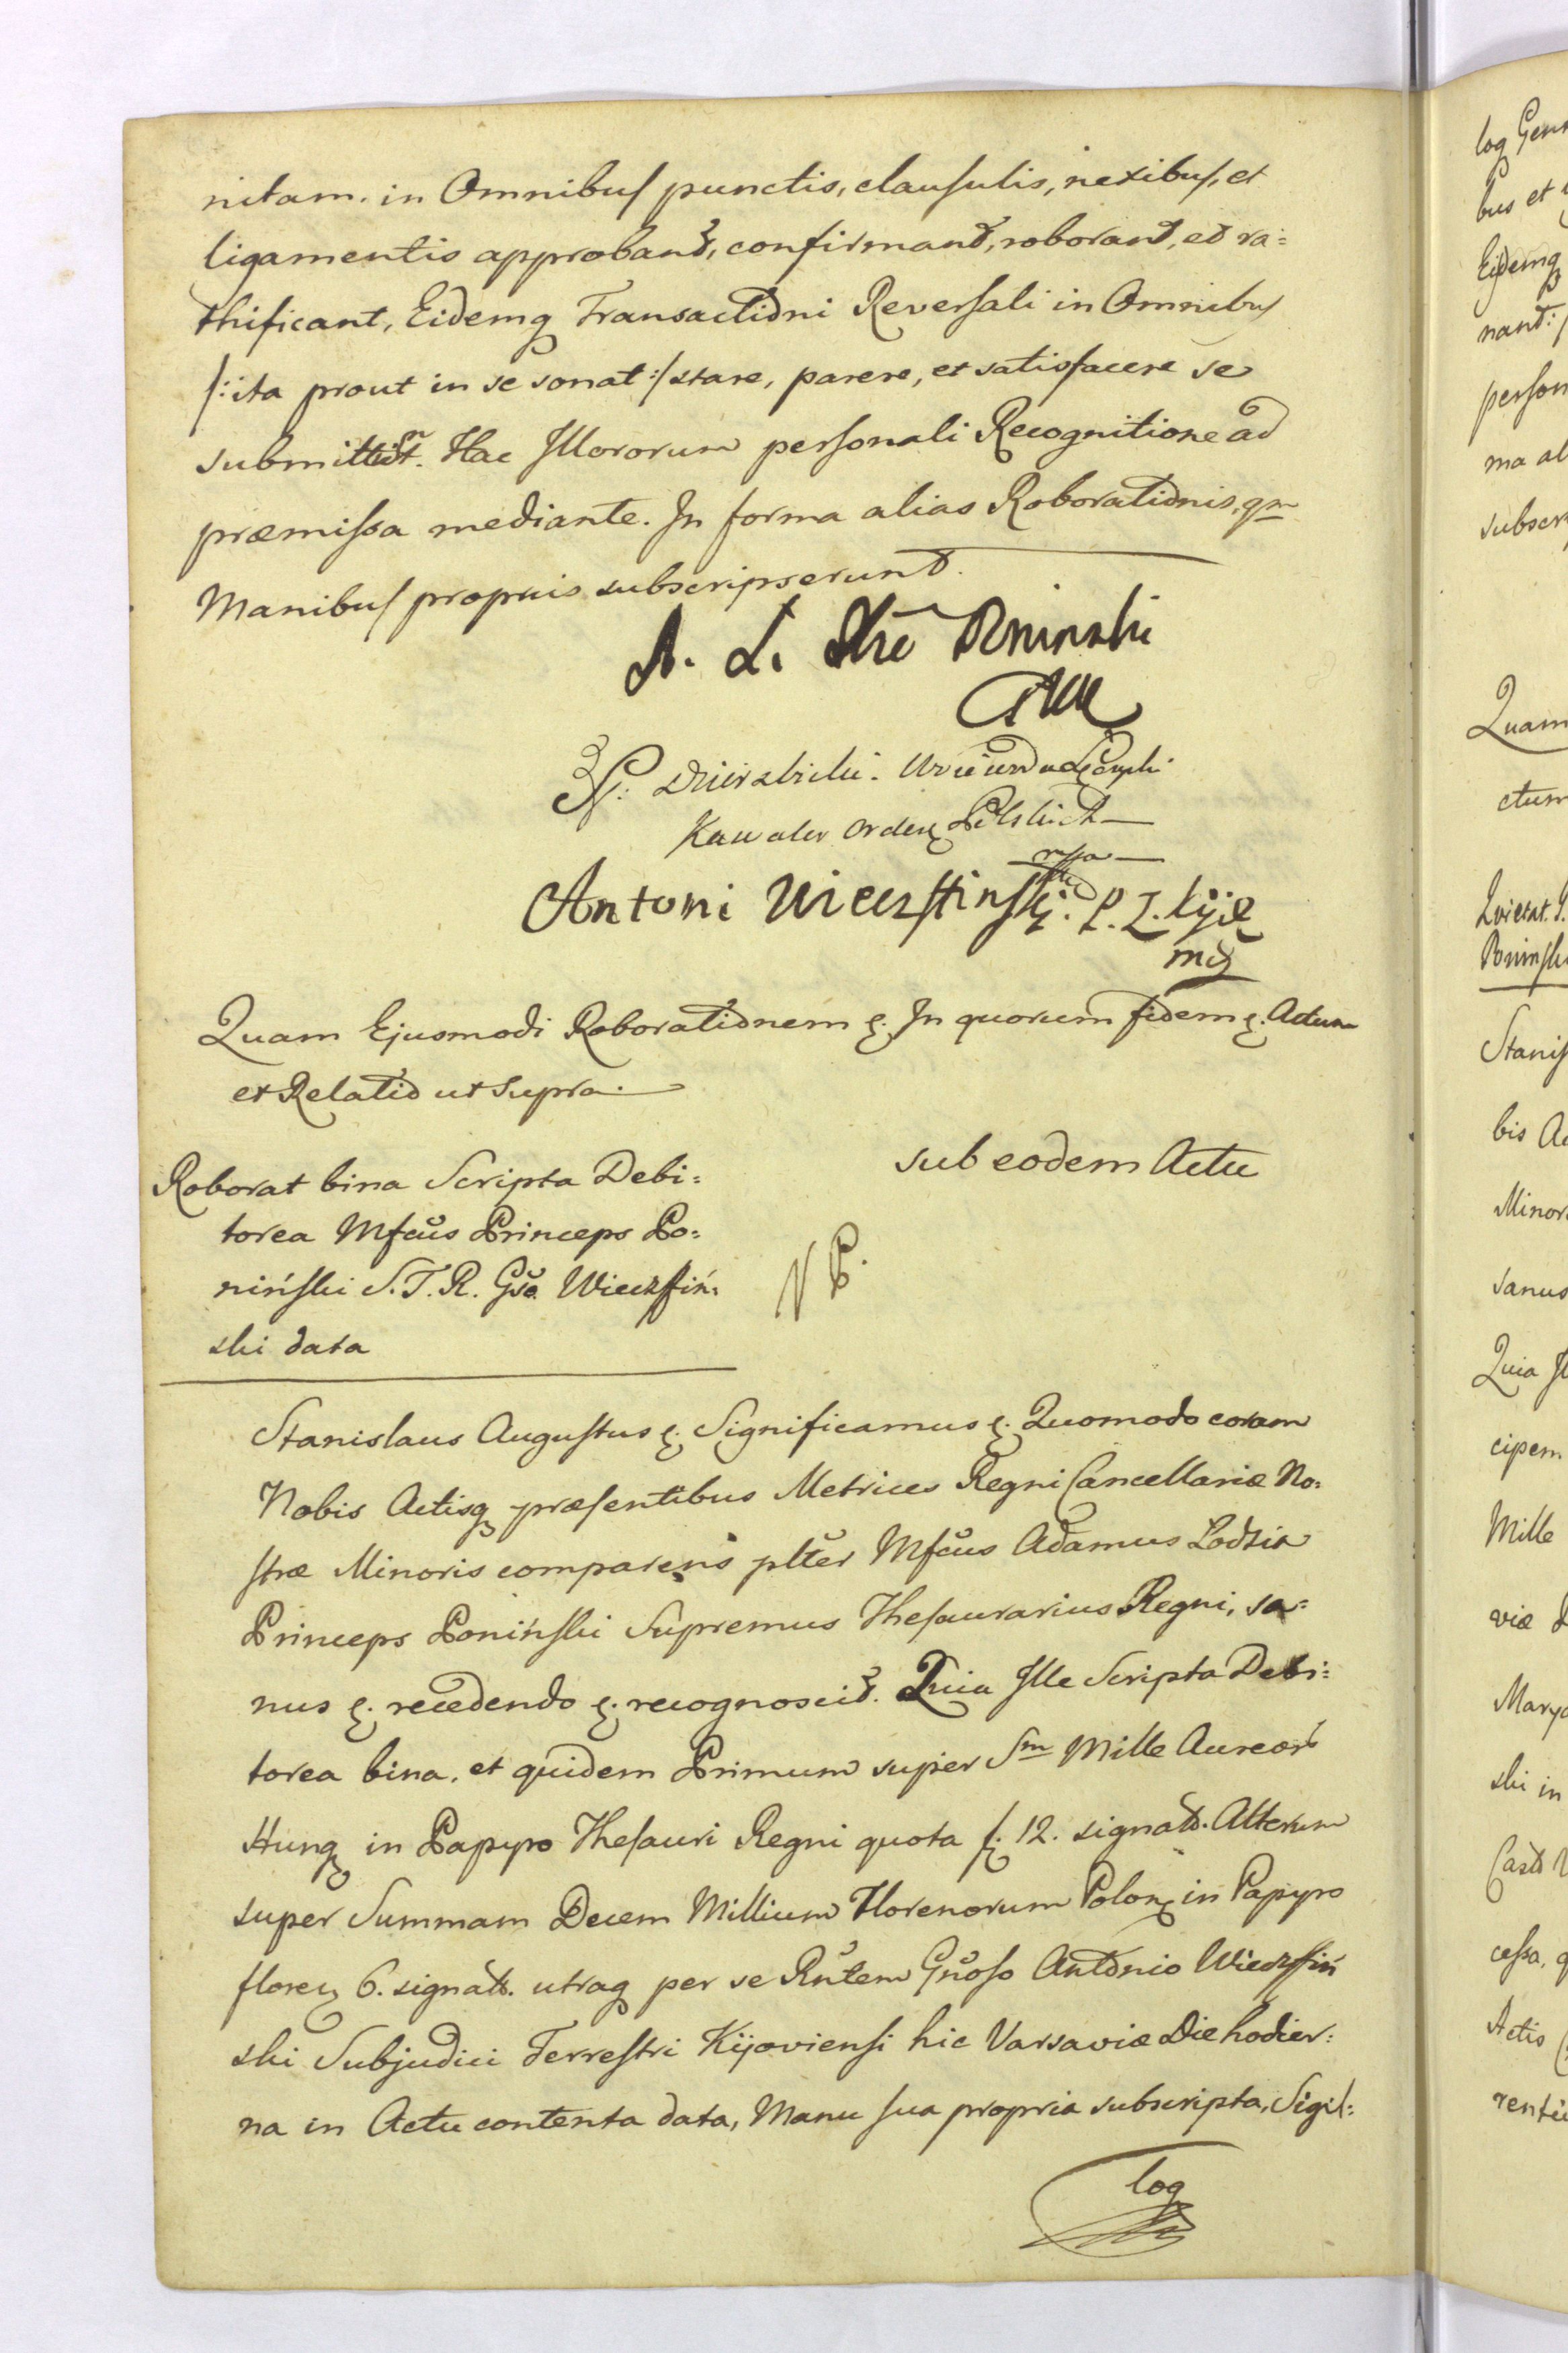 nitam. in Omnibus punctis, clausulis, nexibus, et
ligamentis approbant, confirmant, roborant, et ra:
thificant, Eidemq Transactioni Reversali in Omnibus
/: ita prout in se sonat :/ stare, parere, et satisfacere se
submittunt. Hac Illororum personali Recognitione ad
præmissa mediante. In forma alias Roborationis, qm
Manibus propriis subscripserunt.
A. L. Xże Poninski
Dzierzbicki. Woiewoda Łęczycki
Kawaler Orderu Polskich
mppa
Antoni Wieczffinski. P. Z. Kijo
mp
Quam Ejusmodi Roborationem &. In quorum fidem &. Actum
et Relatio ut Supra.
sub eodem Actu
Roborat bina Scripta Debi:
torea Mfcus Princeps Po:
niński S. T. R. Gso Wieczffiń:
ski data
Stanislaus Augustus &. Significamus &. Quomodo coram
Nobis Actisq præsentibus Metrices Regni Cancellariæ No:
stræ Minoris comparens plter Mfcus Adamus Lodzia
Princeps Poniński Supremus Thesaurarius Regni, sa:
nus &. recedendo &. recognoscit. Quia Ille Scripta Debi:
torea bina, et quidem Primum super Sm Mille Aureor
Hung in Papyro Thesauri Regni quota f. 12. signat. Alterum
super Summam Decem Millium Florenorum Polon in Papyro
floren 6. signat. utraq per se Rntem Gnoso Antonio Wieczffiń
ski Subjudici Terrestri Kijoviensi hic Varsaviæ Die hodier:
na in Actu contenta data, Manu sua propria subscripta, Sigil:
log
log Gen
bus et
Eidemq
nant:
person
ma al
subscr
Quam
ctum
Quietat.
Poninski
Stanis
bis Ac
Minor
sanus
Quia Il
cipem
Mille
viæ
Mary
ski in
Cast
cessa, q
Actis
rent